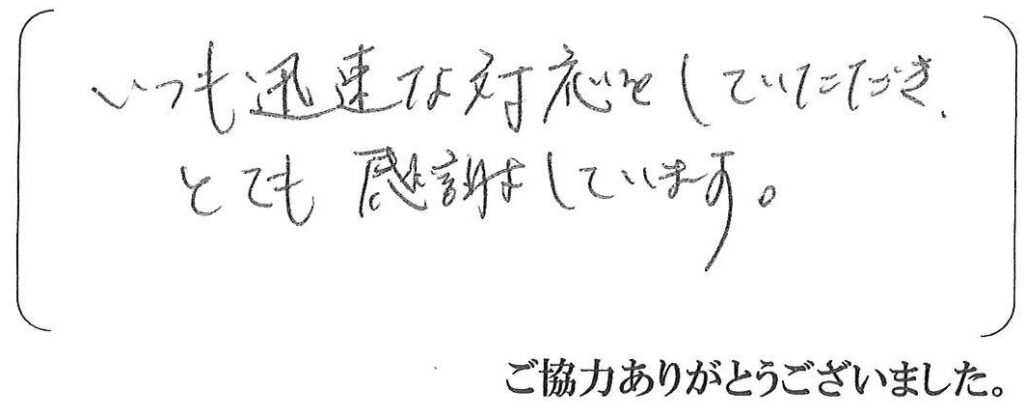 いつも迅速な対応をしていただき、
とても感謝しています。
ご協力ありがとうございました。